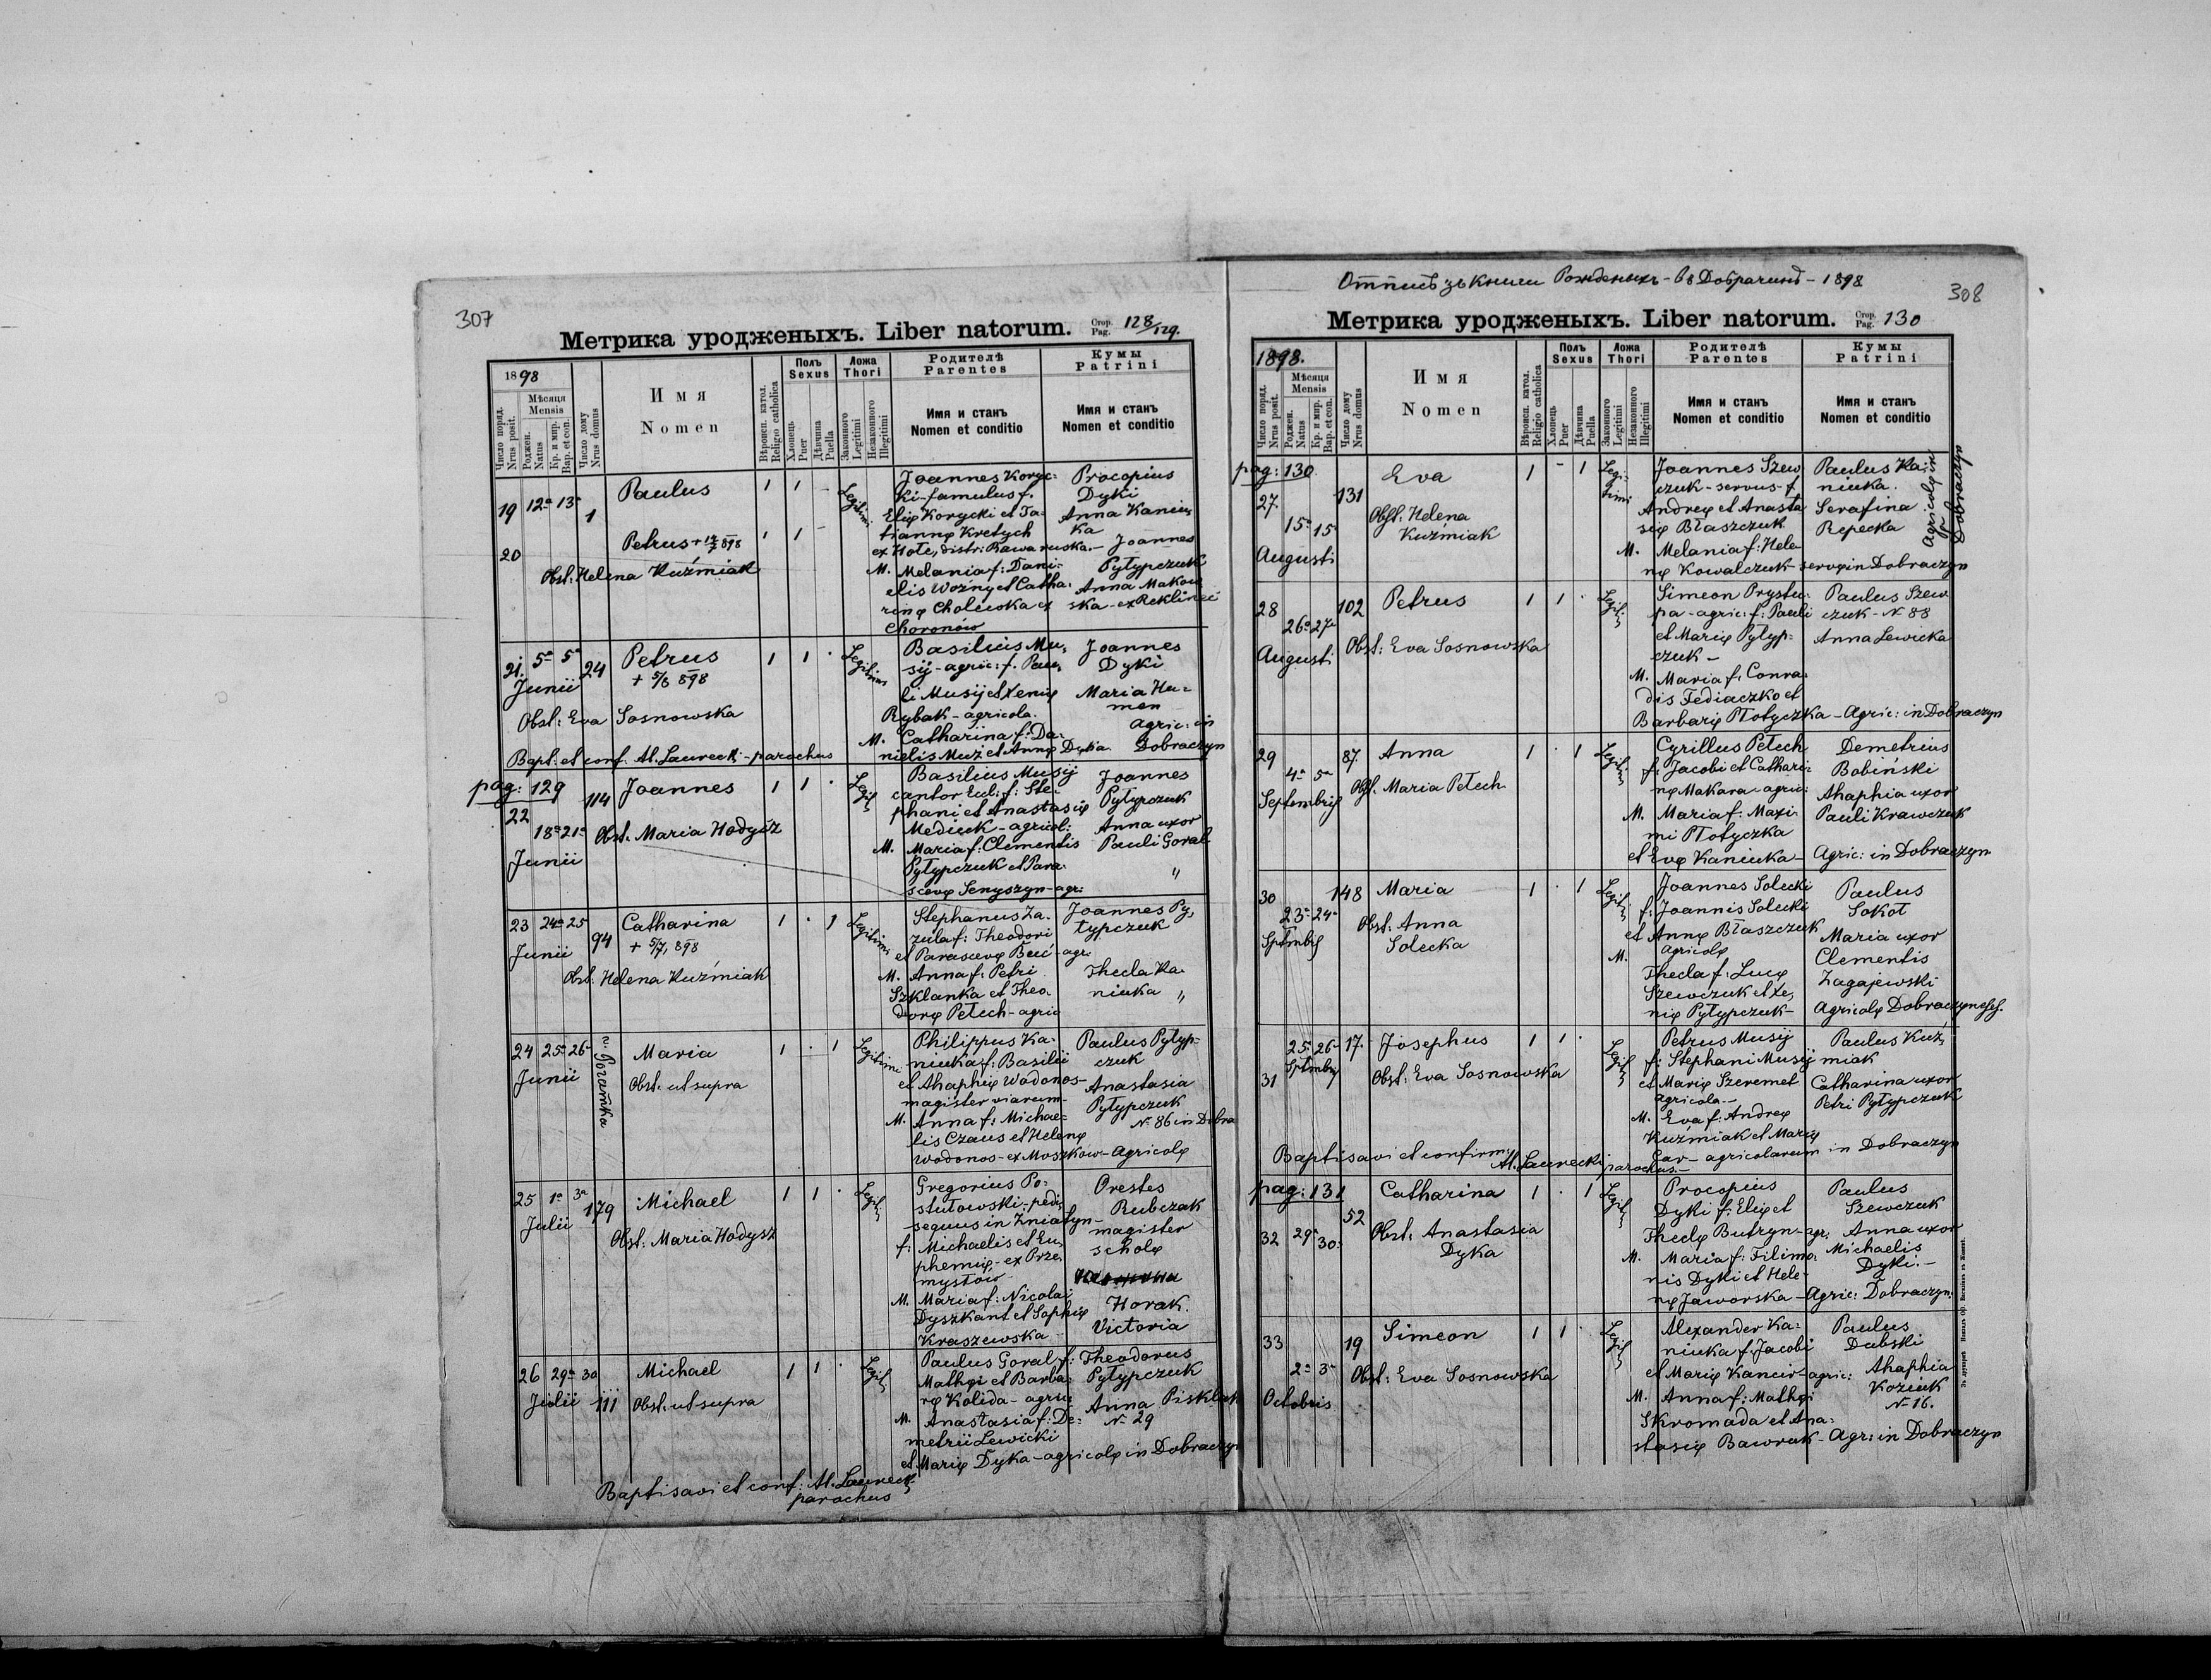 307
Метрика уродженыхъ. Liber natorum. Стор. Pag. 128/129.
1898
Число поряд. Nrus posit.
Мѣсяця Mensis
Роджен. Natus
Кр. и мир. Bap. et con.
Число дому Nrus domus
Имя
Nomen
Вѣроисп. катол. Religio catholica
Полъ Sexus
Хлопець Puer
Дѣвчина Puella
Ложа Thori
Законного Legitimi
Незаконного Illegitimi
Родителѣ
Parentes
Имя и станъ
Nomen et conditio
Кумы
Patrini
Имя и станъ
Nomen et conditio
19 12ª 13ª 1 Paulus 1 1 - Legitimi
20 Petrus + 898 1 1 -
Obst: Helena Kuźmiak
Joannes Koryc-
ki-famulus f.
Elię Korycki et Ta-
tiannę Kretych
ex Hole, distr: Rawa ruska.-
M. Melania f: Dani-
elis Woźny et Catha-
rinę Cholewka ex
Choronów
Procopius
Dyki
Anna Kaniu-
ka
Joannes
Pyłypczuk
Anna Makow
ska - ex Reklinec
21. 5ª 5ª 24 Petrus 1 1 . Legitimi
Junii + 5/8 898
Obst: Eva Sosnowska
Bapt: et conf. Al. Laurecki - parochus
Basilius Mu-
sij - agric: f. Pau-
li Musij et Xenię
Rybak - agricola.
M. Catharina f: Da-
nielis Muź et Annę Dyka.
Joannes
Dyki
Maria Hu-
men
agric: in
Dobraczyn
pag: 129
22 18ª 21ª 114 Joannes 1 1 . Legit
Junii
Obst. Maria Hodysz
Basilius Musij
cantor Eccl: f: Ste-
phani et Anastasię
Mediuk - agricol:
M. Maria f: Clementis
Pyłypczuk et Para-
scevę Senyszyn - agr:
Joannes
Pyłypczuk
Anna uxor
Pauli Goral
"
23 24ª 25 94 Catharina 1 . 1 Legitimi
Junii + 5/7, 898
Obst: Helena Kuźmiak
Stephanus Za-
zula f: Theodori
et Parascevę Beić - agr:
M. Anna f: Petri
Szklanka et Theo-
dorę Petech - agric
Joannes Py-
łypczuk
Thecla Ka-
niuka "
24 25ª 26ª п. Рогатка Maria 1 . 1 Legitimi
Junii
Obst: ut supra
Philippus Ka-
niuka f: Basilii
et Ahaphię Wodonos-
magister viarum-
M. Anna f: Michae-
lis Czaus et Helenę
Wodonos - ex Moszków - Agricolę
Paulus Pyłyp-
czuk
Anastasia
Pyłypczuk
N. 86 in Dobra
25 1ª 3ª 179 Michael 1 1 . Legit
Julii
Obst: Maria Hodysz
Gregorius Po-
stułowski - pedi-
sequus in Zniatyn -
f: Michaelis et Eu-
phemię, - ex Prze-
mysłów
M. Maria f: Nicolai
Dyszkant et Sophię
Kraszewska
Orestes
Rubczak
magister
scholę
Horak.
Victoria
26 29ª 30 111 Michael 1 1 . Legit
Julii
Obst: ut supra
Paulus Goral f:
Mathęi et Barba-
rę Kolida - agric
M. Anastasia f: De-
metrii Lewicki
et Marię Dyka - agricolę in Dobraczyn
Theodorus
Pyłypczuk
Anna Pisklak
N. 29
Baptisavi et conf: Al. Laurecki
parochus
Отписъ зъ книги Рожденыхъ - Въ Добрачинѣ - 1898
308
Метрика уродженыхъ. Liber natorum. Стор. Pag. 130
1898.
Число поряд. Nrus posit.
Мѣсяця Mensis
Роджен. Natus
Кр. и мир. Bap. et con.
Число дому Nrus domus
Имя
Nomen
Вѣроисп. катол. Religio catholica
Полъ Sexus
Хлопець Puer
Дѣвчина Puella
Ложа Thori
Законного Legitimi
Незаконного Illegitimi
Родителѣ
Parentes
Имя и станъ
Nomen et conditio
Кумы
Patrini
Имя и станъ
Nomen et conditio
pag: 130
27 15ª 15ª 131 Eva 1 - 1 Legitimi
Augusti
Obst. Helena
Kuźmiak
Joannes Szew
czuk - servus - f
Andreę et Anasta
się Błaszczuk
M. Melania f: Hele-
nę Kowalczuk - servę in Dobraczyn
Paulus Ka-
niuka.
Serafina
Repecka
Agricolę in
Dobraczyn
28 26ª 27ª 102 Petrus 1 1 . Legit
Augusti
Obst: Eva Sosnowska
Simeon Prystu-
pa - agric: f: Pauli
et Marię Pyłyp-
czuk -
M. Maria f: Conra-
dis Fediaczko et
Barbarię Płotyczka - Agric: in Dobraczyn
Paulus Szew
czuk - N. 88
Anna Lewicka
29 4ª 5ª 87. Anna 1 . 1 Legit
Septembris
Obst. Maria Petech
Cyrillus Petech
f: Jacobi et Cathari-
nę Makara - agric:
M. Maria f: Maxi-
mi Płotyczka
et Evę Kaniuka -
Demetrius
Bobiński
Ahaphia uxor
Pauli Krawczuk
Agric: in Dobraczyn
30 23ª 24ª 148 Maria 1 . 1 Legit
Septmbs
Obst: Anna
Solecka
Joannes Solecki
f: Joannis Solecki
et Annę Błaszczuk
agricolę
M.
Thecla f: Lucę
Szewczuk et Xe-
nię Pyłypczuk -
Paulus
Sokoł
Maria uxor
Clementis
Zagajewski
Agricolę Dobraczynenses.
31 25ª 26ª 17. Josephus 1 1 . Legit
Septmbs
Obst: Eva Sosnowska
Petrus Musij
f: Stephani Musij
et Marię Szeremet
agricola -
M. Eva f: Andreę
Kuźmiak et Marię
Gar - agricolarum in Dobraczyn
Paulus Kuź-
miak
Catharina uxor
Petri Pyłypczuk
Baptisavi et confirm:
Al. Laurecki parochus. -
pag: 131
32 29ª 30ª 52 Catharina 1 . 1 Legit
Obst: Anastasia
Dyka
Procopius
Dyki f: Elię et
Theclę Butryn - agr.
M. Maria f: Filimo-
nis Dyki et Hele-
nę Jaworska - Agric: Dobraczyn.
Paulus
Szewczuk
Anna uxor
Michaelis
Dyki. -
33 2ª 3ª 19 Simeon 1 1 . Legit
Octobris
Obst: Eva Sosnowska
Alexander Ka-
niuka f: Jacobi
et Marię Kancir - agric:
M. Anna f: Mathęi
Skromada et Ana-
stasię Bawruk - Agr: in Dobraczyn
Paulus
Dubski
Ahaphia
Koziuk
N. 16.